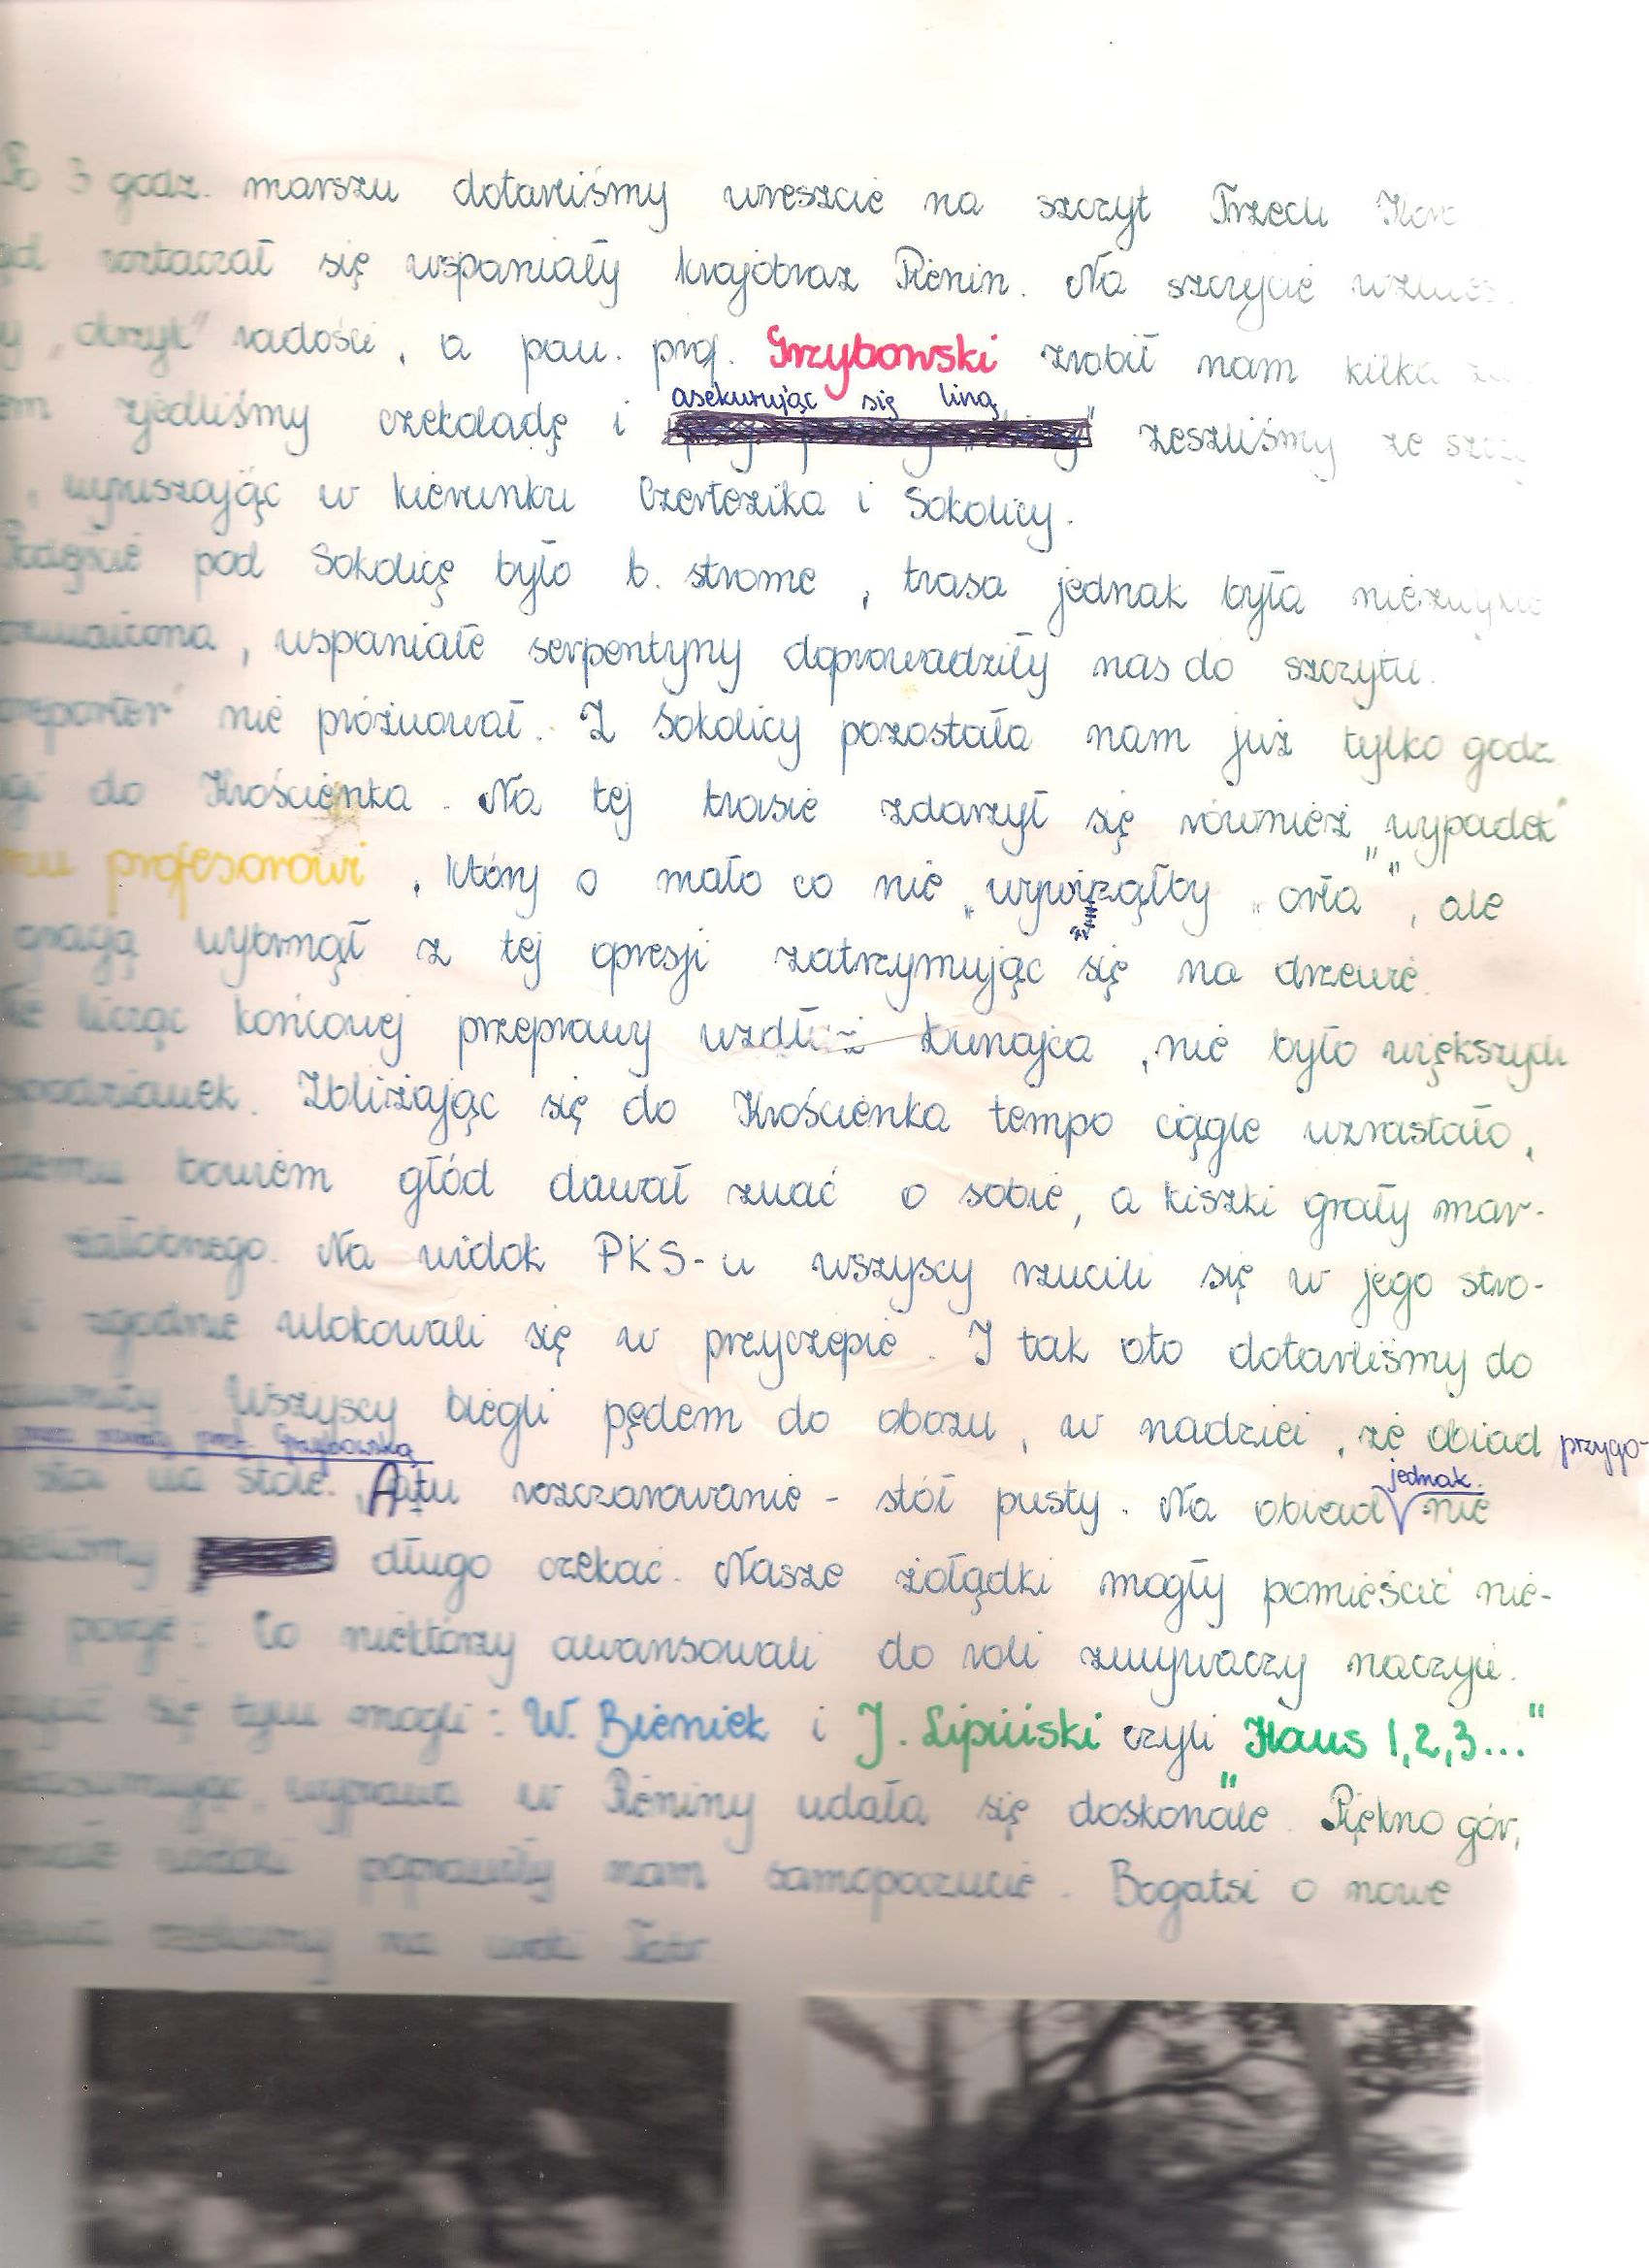 Po 3 godz. marszu dotarliśmy wreszcie na szczyt Trzech Kor
roztaczał się wspaniały krajobraz Pienin. Na szczycie
y „okrzyk" radości, a pan. prof. Grzybowski zrobił nam kilka
asekurując się liną
em zjedliśmy czekoladę i zeszliśmy ze szczy
, wyruszając w kierunku Czertezika i Sokolicy.
Podejście pod Sokolicę było b. strome, trasa jednak była niezwykle
wspaniałe serpentyny doprowadziły nas do szczytu.
reporter" nie próżnował. Z Sokolicy pozostała nam już tylko godz.
gi do Krościenka. Na tej trasie zdarzył się również „wypadek"
mu profesorowi, który o mało co nie „wywinąłby „orła", ale
wybrnął z tej opresji zatrzymując się na drzewie.
licząc końcowej przeprawy wzdłuż Dunajca, nie było większych
spodzianek. Zbliżając się do Krościenka tempo ciągle wzrastało,
demu bowiem głód dawał znać o sobie, a kiszki grały mar-
żałobnego. Na widok PKS-u wszyscy rzucili się w jego stro-
i zgodnie ulokowali się w przyczepie. I tak oto dotarliśmy do
Wszyscy biegli pędem do obozu, w nadziei, że obiad przygo-
prof. Grzybowską
stoi na stole. A tu rozczarowanie - stół pusty. Na obiad jednak nie
długo czekać. Nasze żołądki mogły pomieścić nie-
porcje: Co niektórzy awansowali do roli zmywaczy naczyń.
się tym mogli: W. Bieniek i J. Lipiński czyli "Haus 1,2,3..."
Reasumując, wyprawa w Pieniny udała się doskonale. Piękno gór,
widoki poprawiły nam samopoczucie. Bogatsi o nowe
na szlak Tatr.